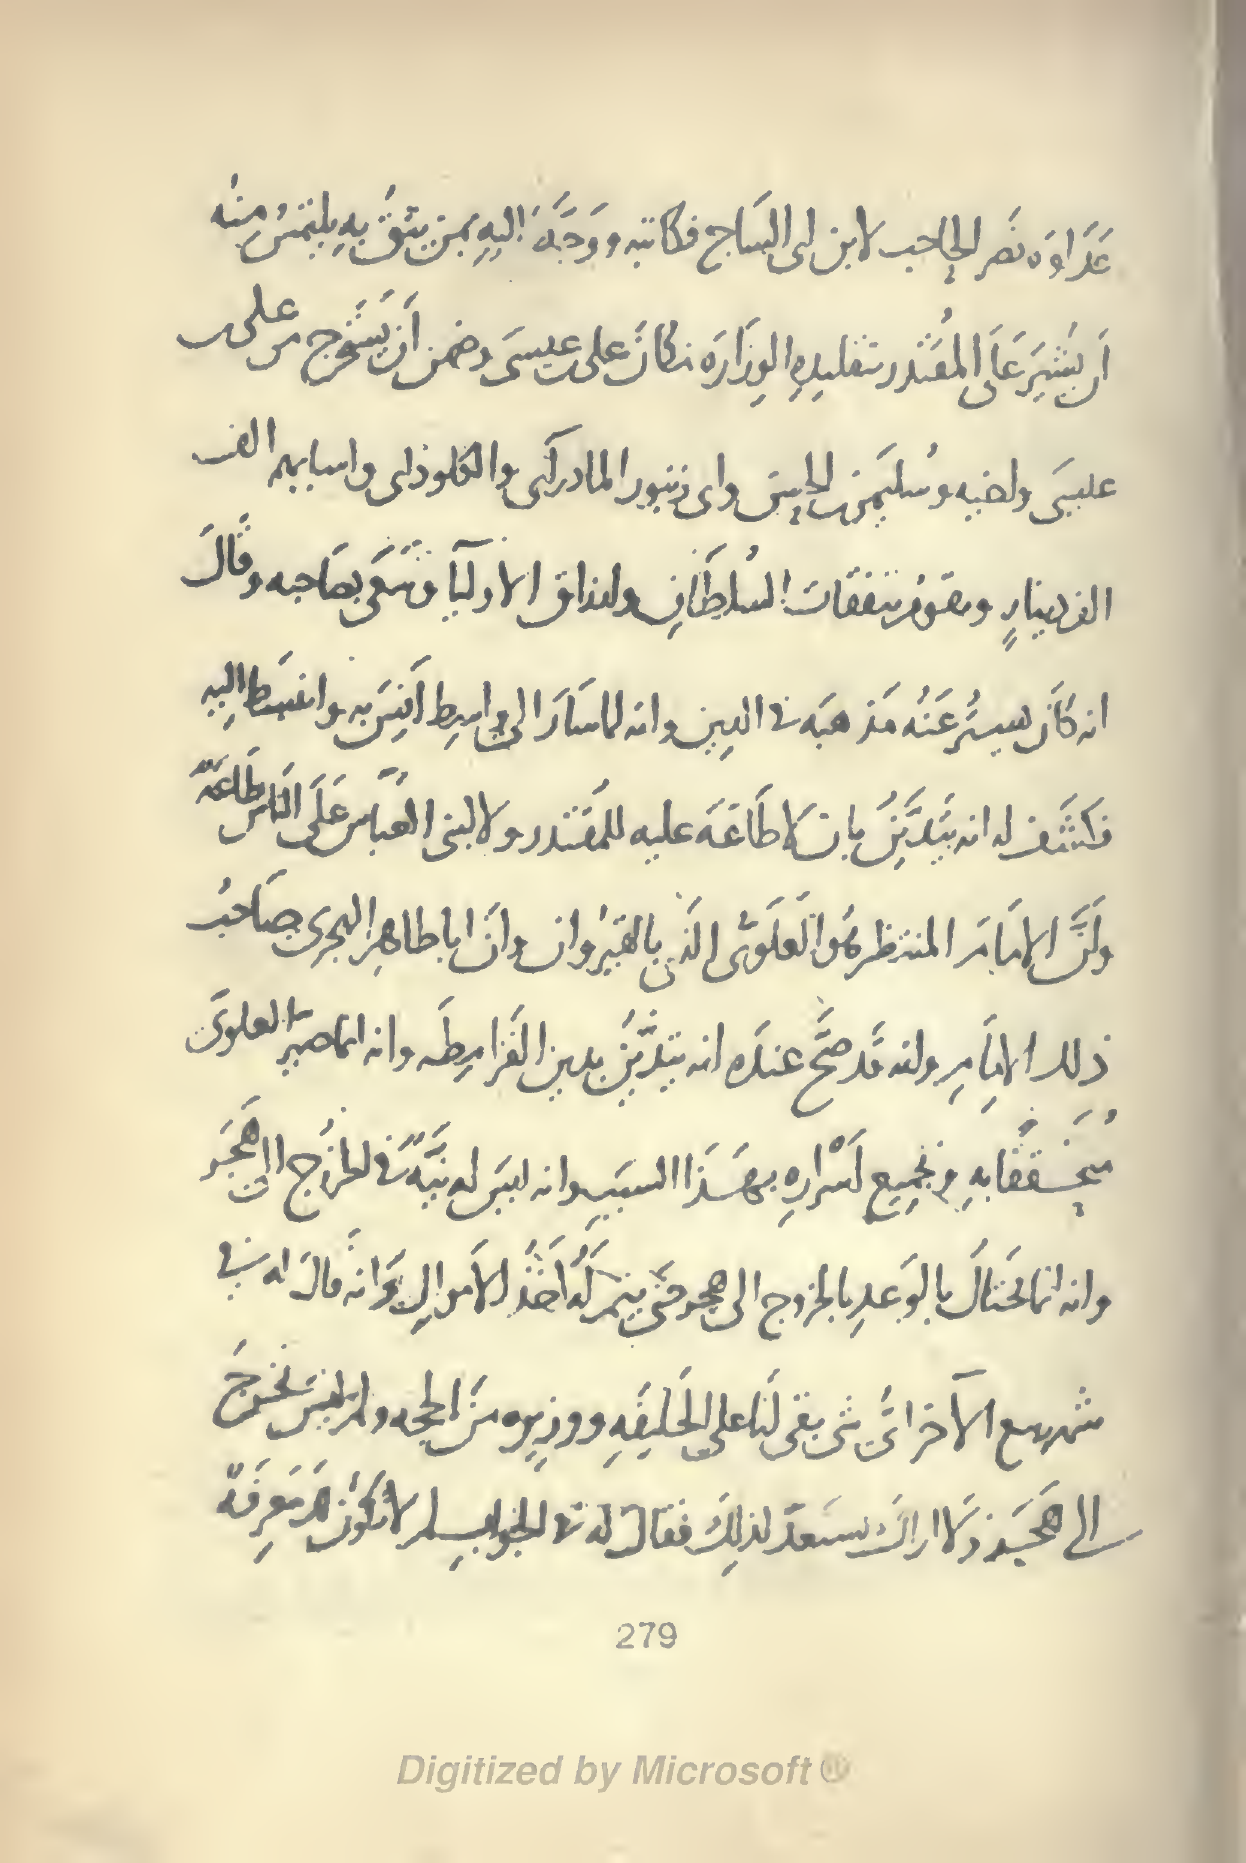 عَدَاوَه نَصر الحاجب لابن ابى السَاج فكاتبه وَوَجَّهَ اليهِ بمن يثقُ بهِ يلتمسُ مِنْه
اَن يُشيرَ عَلَى المُقتدر بتقليدِهِ الوِزَارَه مكانَ على بن عيسَى وضمن اَن يَستخرج من على بن
عيسَى واخيه وسُليمَن بن الحسن وابى زنبور المادرآئى والكلوذانى واسبابهم الف
الف دينارٍ ويقوم بنفقات السُلطَانِ وارزاق الاوليآ وسَعَى بصَاحبه وقَالَ
انه كانَ يستُرُ عَنْه مَذهبَه فى الدين وانه لما سَارَ الى واسِط اَنِسَ به وانبسَطَ اليهِ
فكشَف له انه يَتَديَّنُ بان لا طَاعَةَ عليه للمُقتدر ولا لبنى العبَّاس عَلَى النَاس طَاعَةٌ
وانَّ الامَامَ المنتظر هُوَ العَلَوىّ الذى بالقيرُوان وانَّ ابا طاهِر الهجرى صَاحبُ
ذلك الامَامِ وانه قَد صَحَّ عندَه انه يتديَّنُ بدين القَرَامِطَه وانه انما صيّرَ العلوىَّ
متحققًا بهِ وبجميع اَسْرارِهِ بهَذَا السَببِ وانه ليسَ له نيَّةٌ فى الخرُوج الى هَجَر
وانه انما احتالَ بالوَعدِ بالخروج الى هجر حتى يتم لَهُ اَخْذُ الاَموالِ وَانه قالَ له فى
شهر ربيع الآخر اىُّ شى بقى لنَا على الخَليفَهِ ووزيره منَ الحجه ولم ليسَ تخرجَ
الى هَجَر ولا اراكَ تستعدّ لذلِكَ فقالَ له فى الجوَاب لم لا تكون لكَ مَعرِفَةٌ
279
Digitized by Microsoft ®